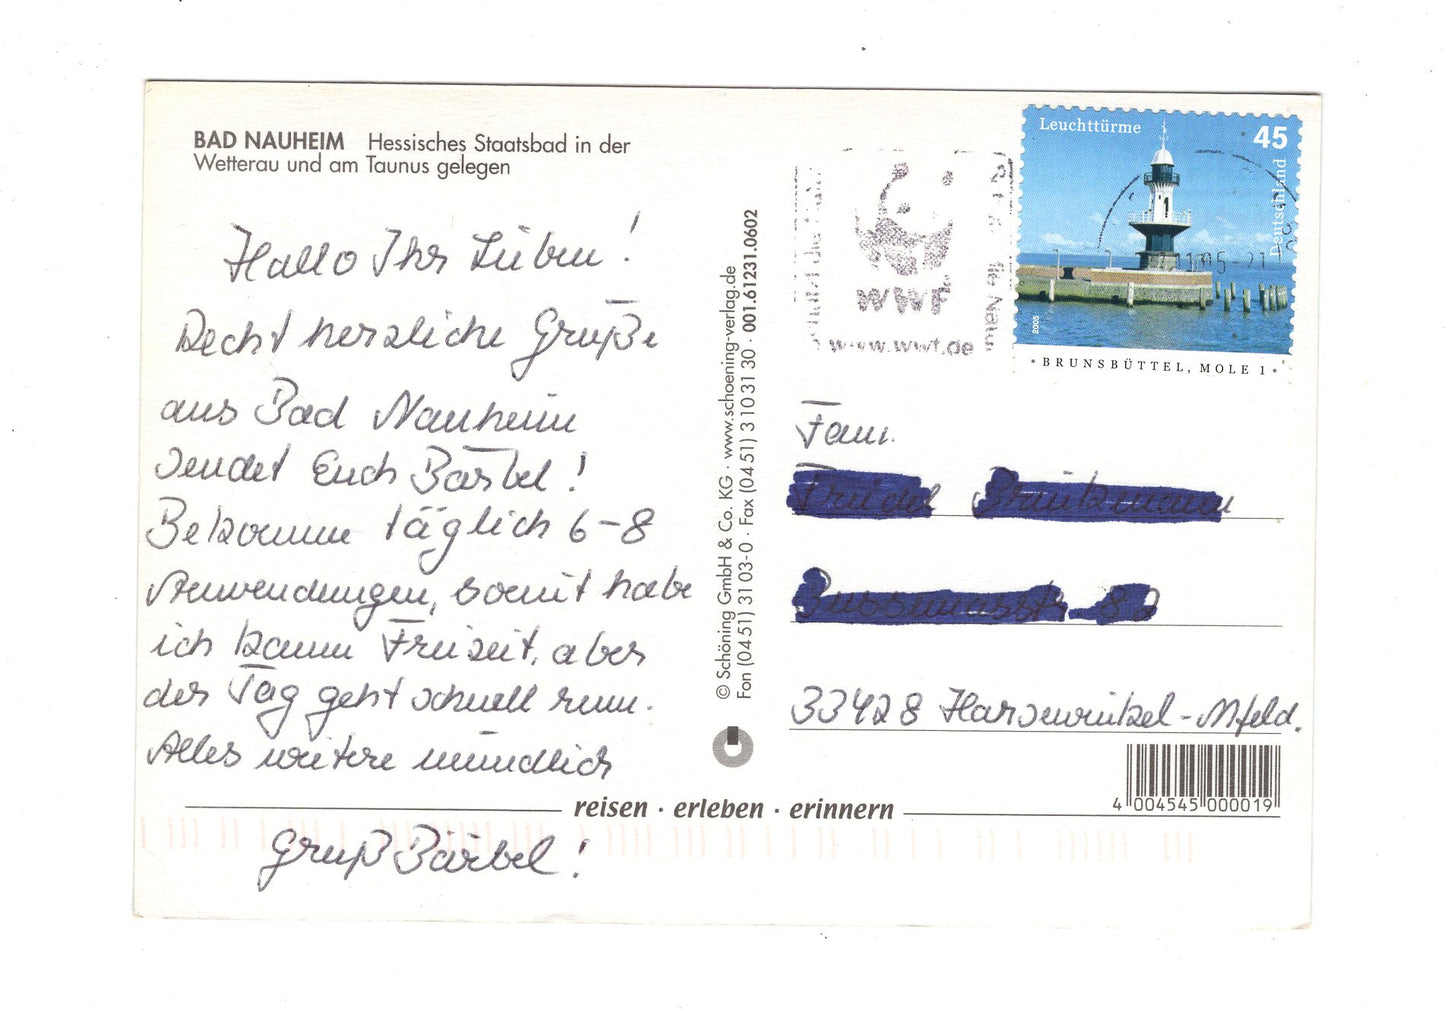 BAD NAUHEIM Hessisches Staatsbad in der
Wetterau und am Taunus gelegen
Hallo Ihr Lieben!
Recht herzliche Grüße
aus Bad Nauheim
sendet Euch Bärbel!
Bekomme täglich 6-8
Anwendungen, somit habe
ich kaum Freizeit, aber
der Tag geht schnell rum.
Alles weitere mündlich
Gruß Bärbel!
© Schöning GmbH & Co. KG · www.schoening-verlag.de
Fon (04 51) 31 03-0 · Fax (04 51) 3 10 31 30 · 001.61231.0602
reisen · erleben · erinnern
WWF
www.wwf.de
Leuchttürme
45
Deutschland
2005
* BRUNSBÜTTEL, MOLE 1 *
Fam.
33428 Harsewinkel-Mfeld.
4 004545 000019